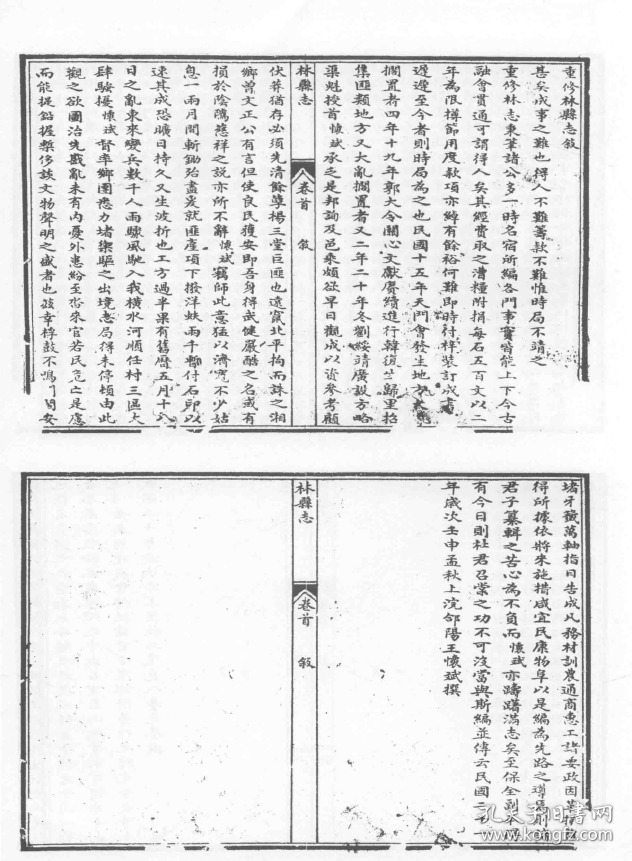 重修林縣志敘
甚矣成事之難也得人不難籌款不難惟時局不靖之
重修林志秉筆諸公多一時名宿所編各門事實皆能上下今古
融會貫通可謂得人矣其經費取之漕糧附捐每石五百文以二
年為限樽節用度款項亦綽有餘裕何難即時付梓裝訂成書
遲遲至今者則時局為之也民國十五年天門會發生地方
擱置者四年十九年郭大令關心文獻賡續進行韓復生歸里招
集匪類地方又大亂擱置者又二年二十年冬劉綏靖廣設方略
渠魁授首懷斌承乏是邦詢及邑乘頗欲早日觀成以資參考顧
林縣志
卷首
敘
伏莽猶存必須先清餘孽楊三堂巨匪也遠竄北平拘而誅之湘
鄉曾文正公有言但使良民獲安即吾身得武健嚴酷之名或有
損於陰隲慈祥之說亦所不辭懷斌竊師此意猛以濟寬不少姑
息一兩月間斬鋤殆盡爰就匪產項下撥洋蚨兩千暫付石印以
速其成恐曠日持久又生波折也工方過半果有舊曆五月十八
日之亂東來變兵數千人雨驟風馳入我橫水河順任村三區大
肆騷擾懷斌督率鄉團悉力堵禦驅之出境志局得未停頓由此
觀之欲圖治先戡亂未有內憂外患紛至沓來官若民危亡是慮
而能提鉛握槧侈談文物聲明之盛者也茲幸桴鼓不鳴閭閻安
堵牙籤萬軸指日告成凡務材訓農通商惠工諸要政因革損益
得所據依將來施措咸宜民康物阜以是編為先路之導焉則諸
君子纂輯之苦心為不負而懷斌亦躊躇滿志矣至保全副
有今日則杜君召棠之功不可沒當與斯編並傳云民國二十
年歲次壬申孟秋上浣郃陽王懷斌撰
林縣志
卷首
敘
孔夫子舊書网
kongfz.com